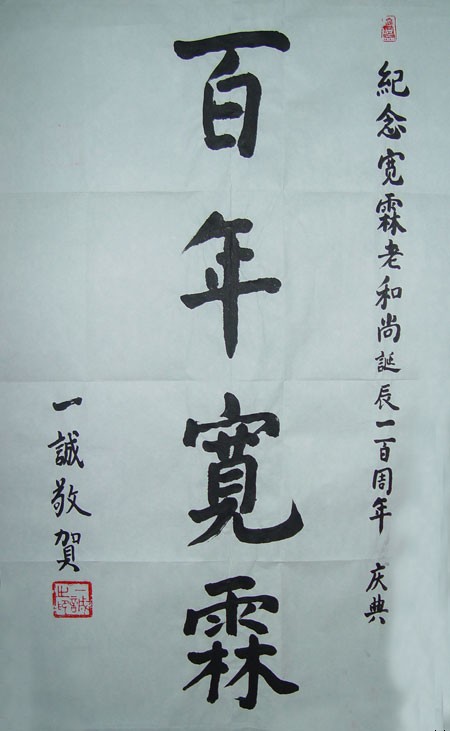 紀念宽霖老和尚誕辰一百周年 庆典
百年寬霖
一誠敬賀